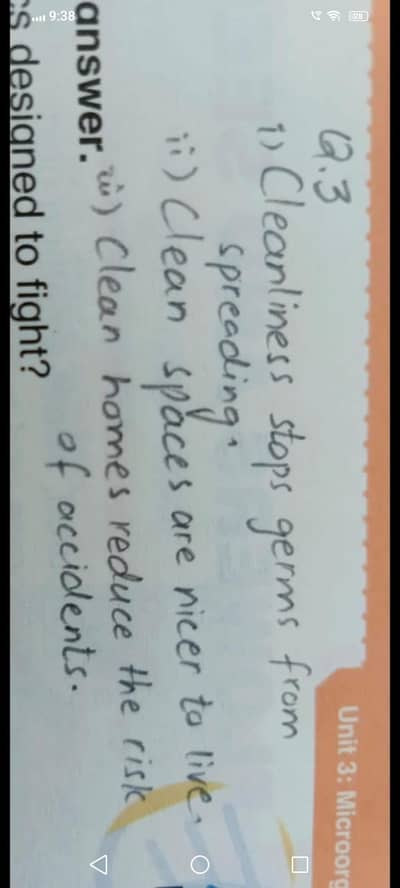 9:38
Unit 3: Microorg
Q.3
i) Cleanliness stops germs from
spreading.
ii) Clean spaces are nicer to live.
iii) Clean homes reduce the risk
of accidents.
answer.
es designed to fight?